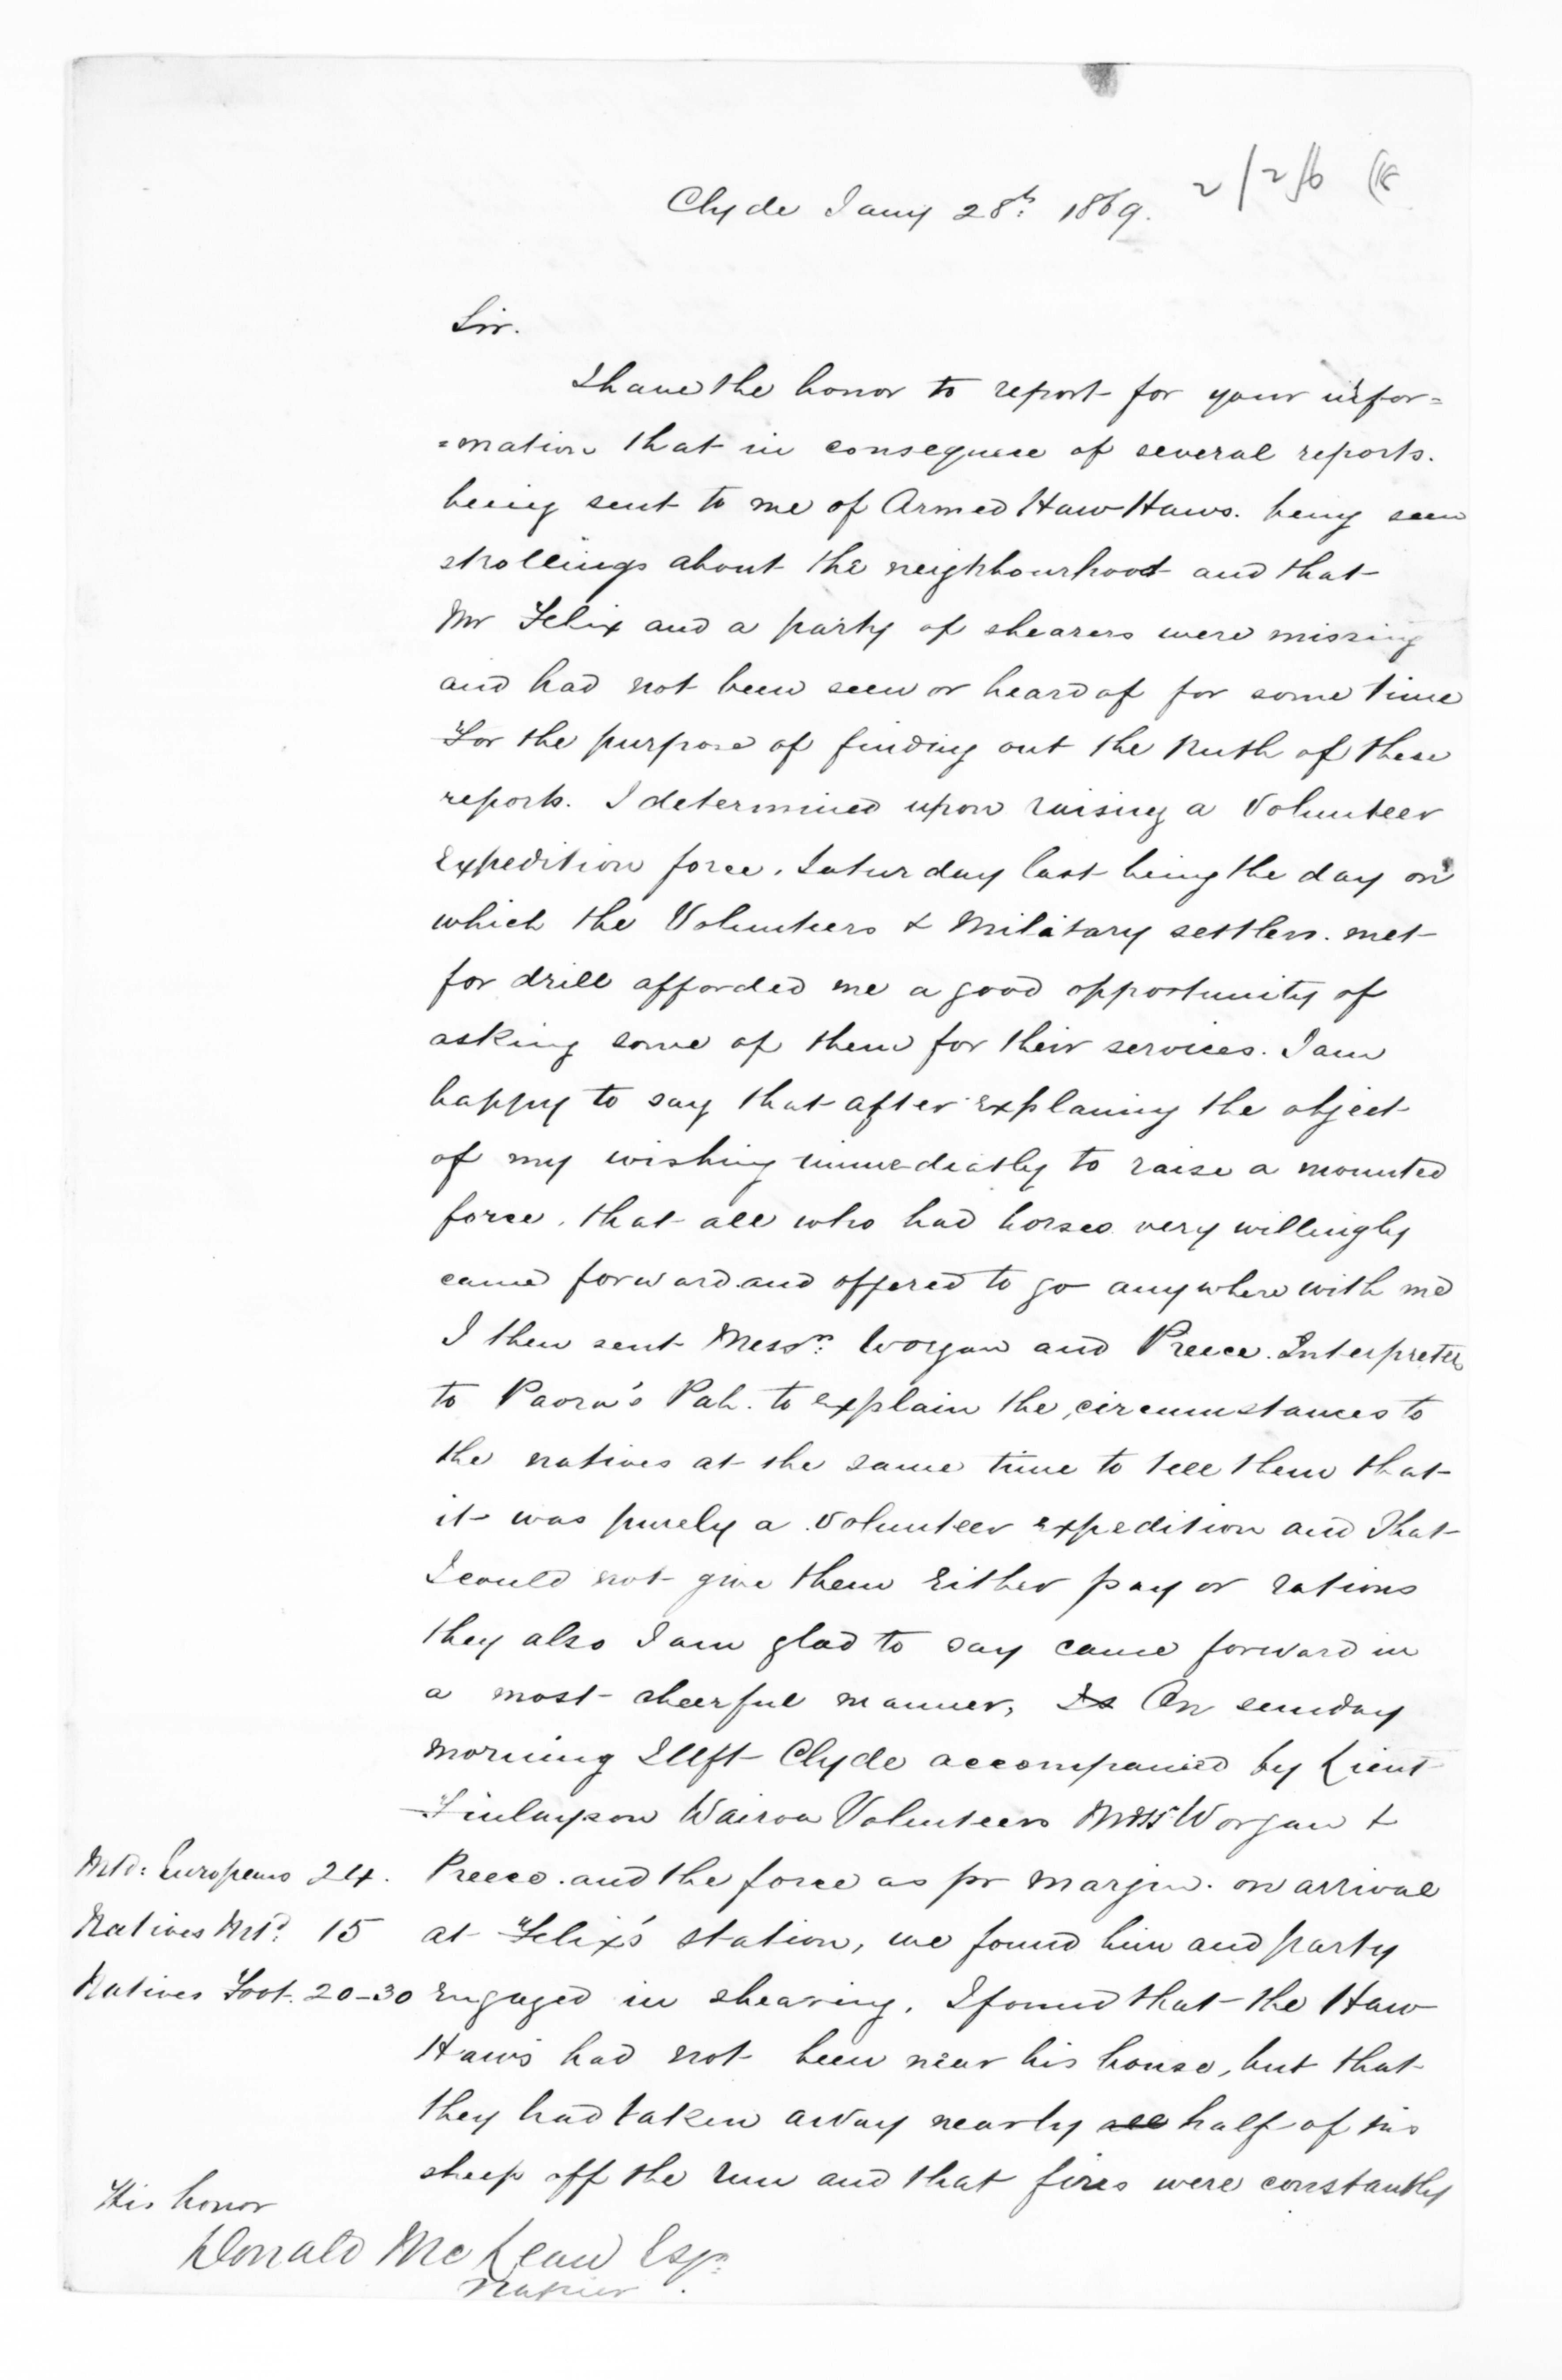 Clyde Jany 28th: 1869.
Sir.
I have the honor to report for your infor=
=mation that in consequence of several reports.
being sent to me of Armed Haw Haws. being seen
strollings about the neighbourhood and that
Mr Felix and a party of shearers were missing
and had not been seen or heard of for some time
For the purpose of finding out the truth of these
reports. I determined upon raising a Volunteer
Expedition force. Saturday last being the day on
which the Volunteers & Military settlers. met
for drill afforded me a good opportunity of
asking some of them for their services. I am
happy to say that after explaining the object
of my wishing immediatly to raise a mounted
force. that all who had horses very willingly
came forward and offered to go anywhere with me
I then sent Messrs: Worgan and Preece. Interpreters
to Paora's Pah. to explain the circumstances to
the natives at the same time to tell them that
it was purely a Volunteer expedition and that
I could not give them Either pay or rations
they also I am glad to say came forward in
a most cheerful manner, On sunday
morning I left Clyde accompanied by Lieut
Finlayson Wairoa Volunteers Messrs Worgan &
Mtd: Europeans 24. Preece. and the force as pr margin. on arrival
Natives Mtd: 15 at Felix's station, we found him and party
Natives Foot. 20-30 Engaged in shearing. I found that the Haw
Haws had not been near his house, but that
they had taken away nearly all half of his
sheep off the run and that fires were constantly
His honor
Donald McLean Esqr:
Napier.